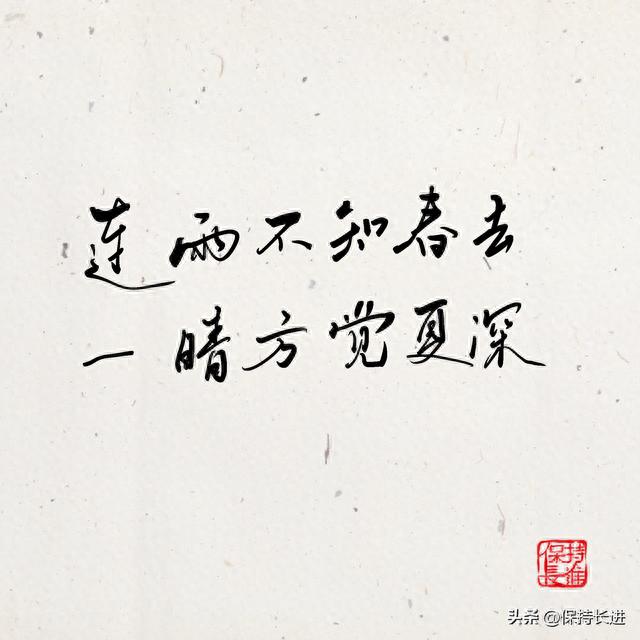 连雨不知春去
一晴方觉夏深
保持长进
头条 @保持长进